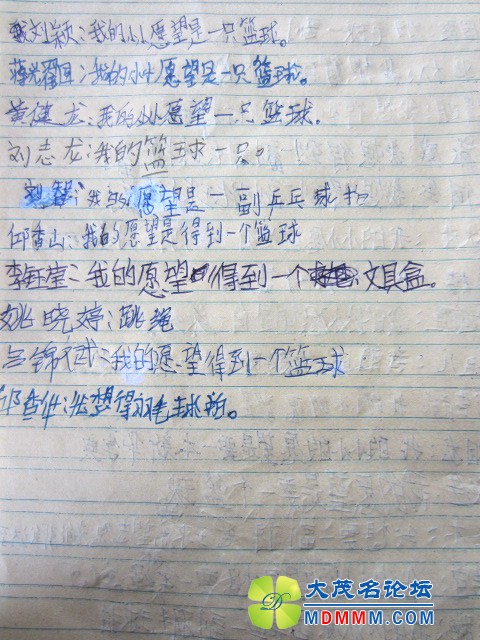 刘颖：我的小小愿望是一只篮球。
蒋光耀：我的小小愿望是一只篮球。
黄健龙：我的小小愿望一只篮球.
刘志龙：我的篮球一只。
刘：我的愿望是一副乒乓球拍
邱香山：我的愿望是得到一个篮球
李钰莹：我的愿望得到一个文具盒。
姚晓婷：跳绳
锦斌：我的愿望得到一个篮球
邱香：想得羽毛球拍。
大茂名论坛
MDMMM.COM